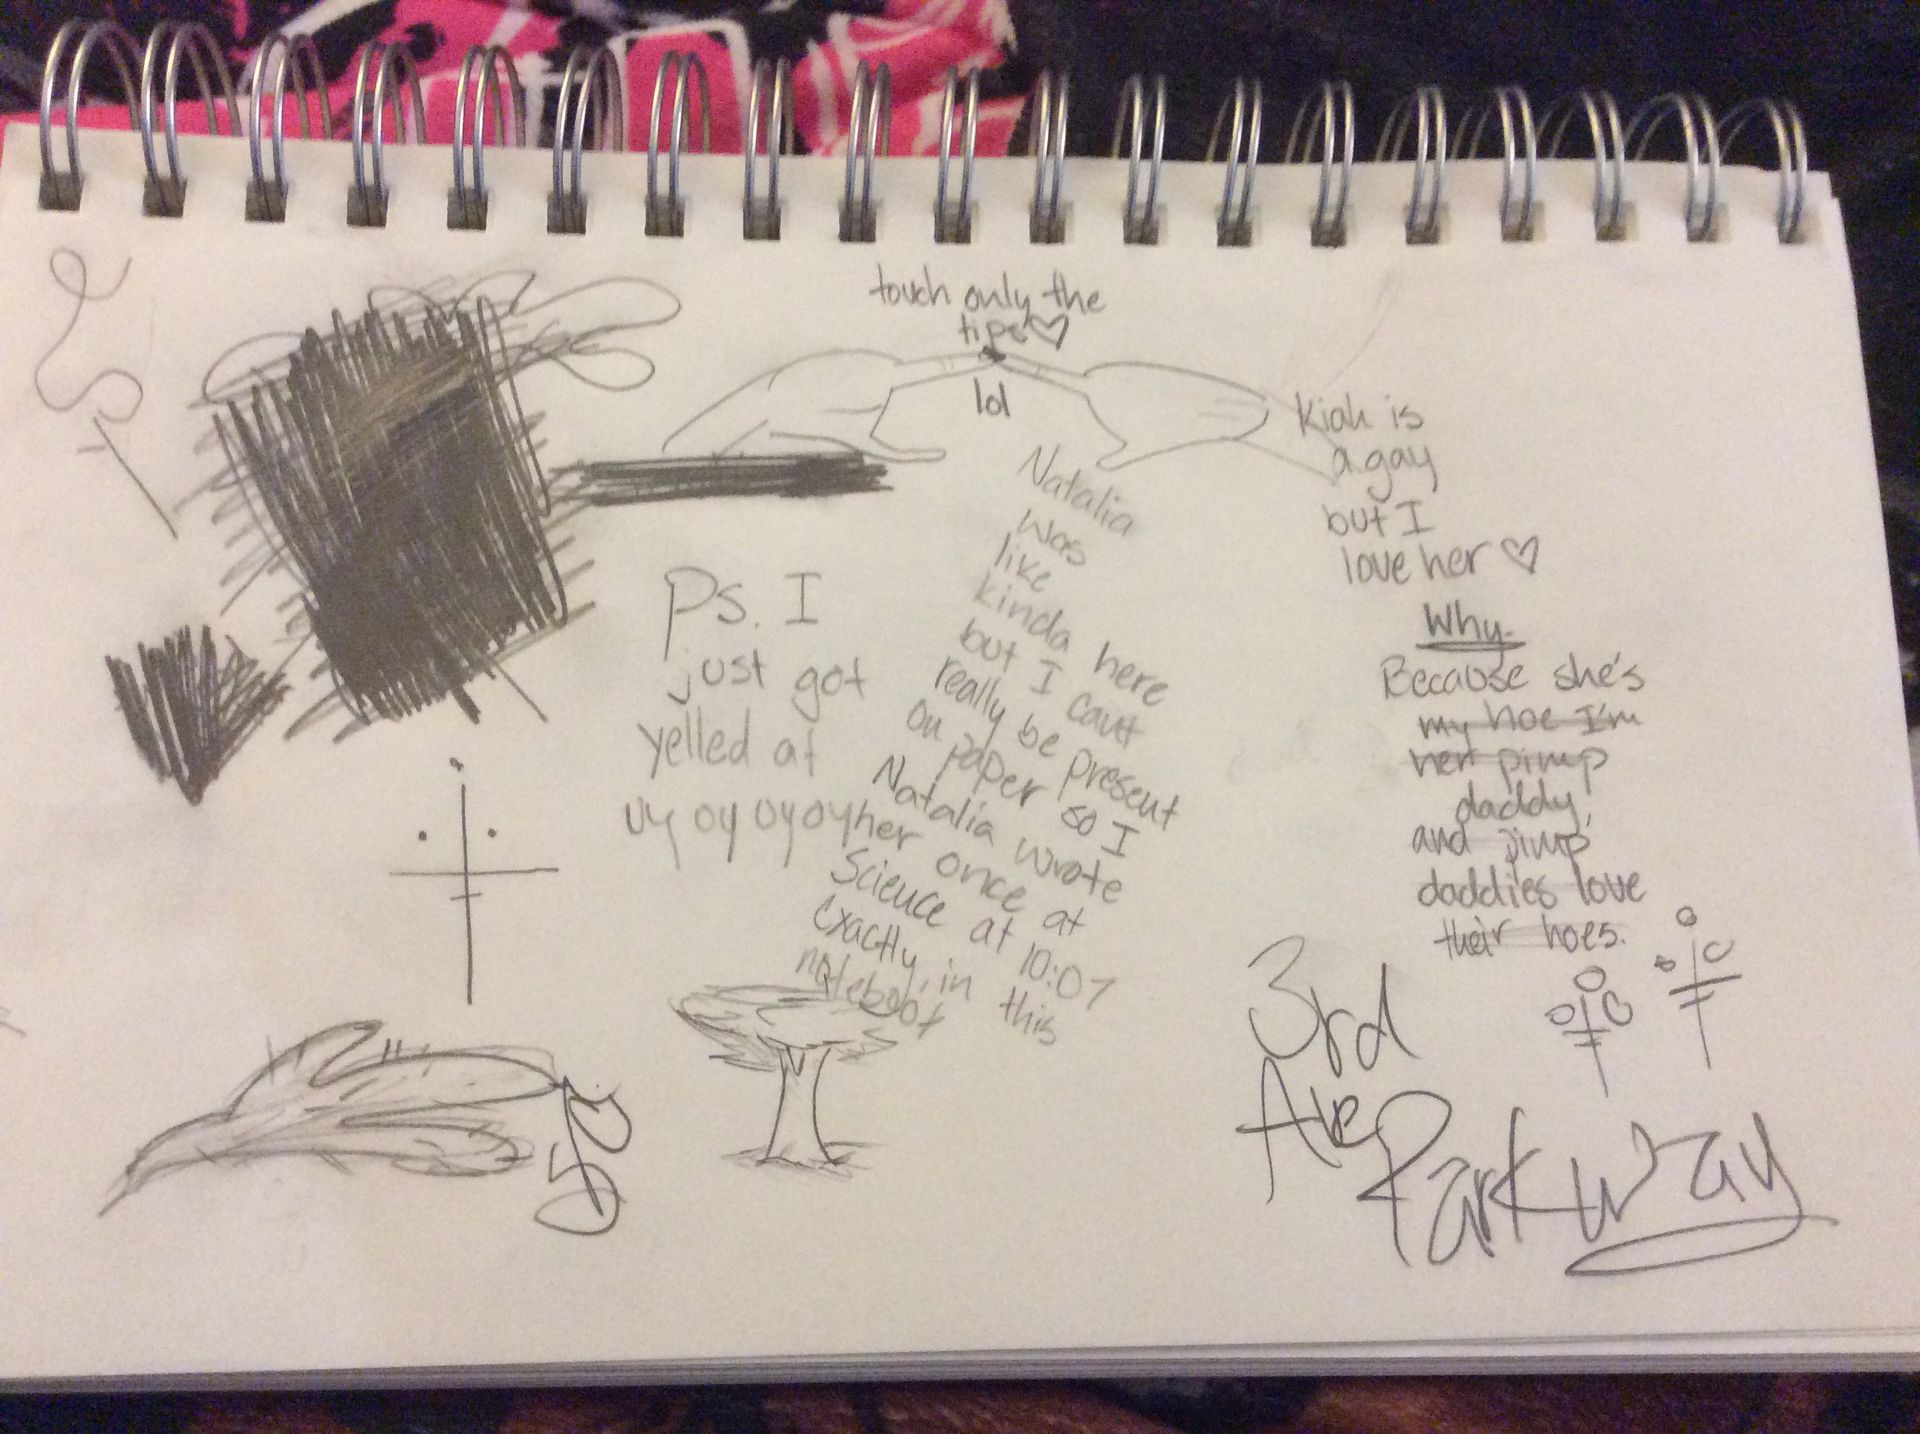 touch only the
tips♡
lol
Kiah is
a gay
but I
love her ♡
Why.
Because she's
my hoe I'm
her pimp
daddy,
and pimp
daddies love
their hoes.
Natalia
was
like
kinda here
but I cant
really be present
on paper so I
Natalia wrote
her once at
Science at 10:07
exactly, in this
noteboot
Ps. I
just got
yelled at
uy oy oy oy
3rd
Ave
Parkway